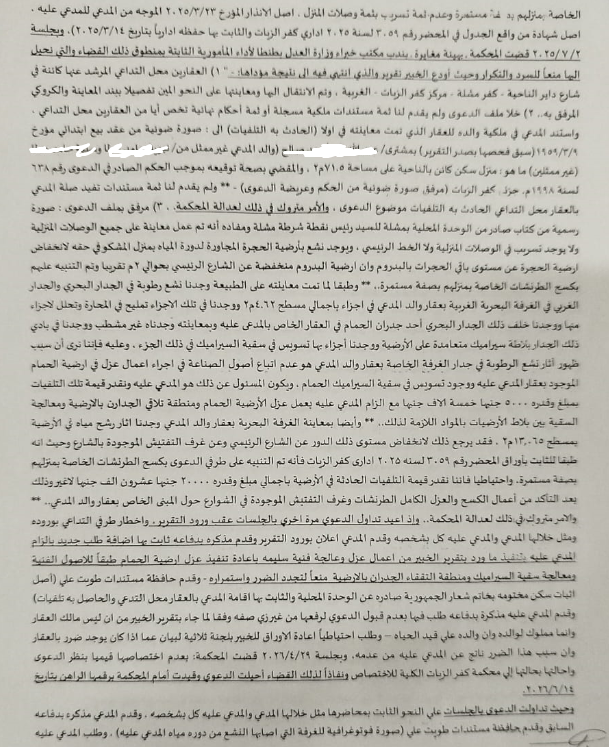 الخاصة بمنزلهم بصفة مستمرة وعدم ثمة تسريب بثمة وصلات المنزل . اصل الانذار المؤرخ ٢٠٢٥/٣/٢٣ الموجه من المدعي للمدعي عليه .
اصل شهادة من واقع الجدول في المحضر ٣٠٥٩ لسنة ٢٠٢٥ اداري كفر الزيات والثابت بها حفظه ادارياً بتاريخ ٢٠٢٥/٣/١٤)، وبجلسة
٢٠٢٥/٧/٢ قضت المحكمة. بهيئة مغايرة. بندب مكتب خبراء وزارة العدل بطنطا لأداء المأمورية الثابتة بمنطوق ذلك القضاء والتي نحيل
اليها منعاً للسرد والتكرار وحيث أودع الخبير تقرير والذي انتهي فيه الى نتيجة مؤداها: - " ١) العقارين محل التداعي المرشد عنها كائنة في
شارع داير الناحية - كفر مشلة - مركز كفر الزيات - الغربية ، وتم الانتقال اليها ومعاينتها على النحو المبين تفصيلا ببند المعاينة والكروكي
المرفق به.. ٢) خلا ملف الدعوى ولم يقدم لنا ثمة مستندات ملكية مسجلة أو ثمة أحكام نهائية تخص أيا من العقارين محل التداعي ،
واستند المدعي في ملكية والده للعقار الذي تمت معاينته في اولا (الحادث به التلفيات) الى : صورة ضوئية من عقد بيع ابتدائي مؤرخ
١٩٥٩/٣/٩ (سبق فحصها بصدر التقرير) بمشترى/ (والد المدعي غير ممثل من/
(غير ممثلين) ما هو : منزل سكن كائن بالناحية على مساحة ٧١.٥م٢ ، والمقضي بصحة توقيعه بموجب الحكم الصادر في الدعوى رقم ٦٣٨
لسنة ١٩٩٨م. جزئي كفر الزيات (مرفق صورة ضوئية من الحكم وعريضة الدعوى) - ** ولم يقدم لنا ثمة مستندات تفيد صلة المدعي
بالعقار محل التداعي الحادث به التلفيات موضوع الدعوى ، والأمر متروك في ذلك لعدالة المحكمة. ، ٣) مرفق بملف الدعوى : صورة
رسمية من كتاب صادر من الوحدة المحلية بمشلة للسيد رئيس نقطة شرطة مشلة ومفاده أنه تم عمل معاينة على جميع الوصلات المنزلية
ولا يوجد تسريب في الوصلات المنزلية ولا الخط الرئيسي ، ويوجد نشع بأرضية الحجرة المجاورة لدورة المياه بمنزل المشكو في حقه لانخفاض
ارضية الحجرة عن مستوى باقي الحجرات بالبدروم وان ارضية البدروم منخفضة عن الشارع الرئيسي بحوالي ٢م تقريبا وتم التنبيه عليهم
بكسح الطرنشات الخاصة بمنزلهم بصفة مستمرة.. ** وطبقا لما تمت معاينته على الطبيعة وجدنا نشع رطوبة في الجدار البحري والجدار
الغربي في الغرفة البحرية الغربية بعقار والد المدعي في اجزاء باجمالي مسطح ٤.٦٢م٢ ووجدنا في تلك الاجزاء تمليح في المحارة وتحلل لاجزاء
منها ووجدنا خلف ذلك الجدار البحري أحد جدران الحمام في العقار الخاص بالمدعى عليه وبمعاينته وجدناه غير مشطب ووجدنا في بادي
ذلك الجدار بلاطة سيراميك متعامدة على الأرضية ووجدنا أجزاء بها تسويس في سقية السيراميك في ذلك الجزء . وعليه فإننا نرى أن سبب
ظهور آثار نشع الرطوبة في جدار الغرفة الخاصة بعقار والد المدعي هو عدم اتباع أصول الصناعة في اجراء اعمال عزل في ارضية الحمام
الموجود بعقار المدعي عليه ووجود تسويس في سقية السيراميك الحمام ، ويكون المسئول عن ذلك هو المدعي عليه ونقدر قيمة تلك التلفيات
بمبلغ وقدره ٥٠٠٠ جنيها خمسة الاف جنيها مع الزام المدعي عليه بعمل عزل الأرضية الحمام ومنطقة تلاقي الجدارن بالارضية ومعالجة
السقية بين بلاط الأرضيات بالمواد اللازمة لذلك.. ** وأيضا بمعاينة الغرفة البحرية بعقار والد المدعي وجدنا آثار رشح مياه في الأرضية
بمسطح ١٣.٠٦٥م٢ ، فقد يرجع ذلك لانخفاض مستوى ذلك الدور عن الشارع الرئيسي وعن غرف التفتيش الموجودة بالشارع وحيث انه
طبقا للثابت بأوراق المحضر رقم ٣٠٥٩ لسنه ٢٠٢٥ ادارى كفر الزيات فأنه تم التنبيه على طرفي الدعوى بكسح الطرنشات الخاصة بمنزلهم
بصفة مستمرة. واحتياطيا فاننا نقدر قيمة التلفيات الحادثة في الأرضية باجمالي مبلغ وقدره ٢٠٠٠٠ جنيها عشرون الف جنيها لاغير وذلك
بعد التأكد من أعمال الكسح والعزل الكامل الطرنشات وغرف التفتيش الموجودة في الشوارع حول المبنى الخاص بعقار والد المدعي.. **
والامر متروك في ذلك لعدالة المحكمة.. وإذ اعيد تداول الدعوي مرة اخري بالجلسات عقب ورود التقرير، واخطار طرفي التداعي بوروده
ومثل خلالها المدعي والمدعي عليه كل بشخصه وقدم المدعي اعلان بورود التقرير وقدم مذكره بدفاعه ثابت بها اضافة طلب جديد بالزام
المدعي عليه بتنفيذ ما ورد بتقرير الخبير من اعمال عزل وعالجة فنية سليمه باعادة تنفيذ عزل ارضية الحمام طبقاً للاصول الفنية
ومعالجة سقية السيراميك ومنطقة التقاء الجدران بالارضية منعاً لتجدد الضرر واستمراره - وقدم حافظة مستندات طويت علي (أصل
اثبات سكن مختومه بخاتم شعار الجمهورية صادره عن الوحدة المحلية والثابت بها اقامة المدعي بالعقار محل التدعي والحاصل به تلفيات)
وقدم المدعي عليه مذكرة بدفاعه طلب فيها بعدم قبول الدعوي لرفعها من غير زي صفه وفقا لما جاء بتقرير الخبير من ان ليس مالك العقار
وانما مملوك لوالده وان والده علي قيد الحياه - وطلب احتياطياً اعادة الاوراق للخبير بلجنة ثلاثية لبيان عما اذا كان يوجد ضرر بالعقار
وان سبب هذا الضرر ناتج عن المدعي عليه من عدمه. وبجلسة ٢٠٢٦/٤/٢٩ قضت المحكمة: بعدم اختصاصها قيمها بنظر الدعوى
واحالتها بحالتها إلي محكمة كفر الزيات الكلية للاختصاص ونفاذاً لذلك القضاء أحيلت الدعوي وقيدت أمام المحكمة برقمها الراهن بتاريخ
٢٠٢٦/٦/١٤.
وحيث تداولت الدعوى بالجلسات علي النحو الثابت بمحاضرها مثل خلالها المدعي والمدعي عليه كل بشخصه ، وقدم المدعي مذكره بدفاعه
السابق وقدم حافظة مستندات طويت علي (صورة فوتوغرافية للغرفة التي اصابها النشع من دوره مياه المدعي عليه) ، وطلب المدعي عليه